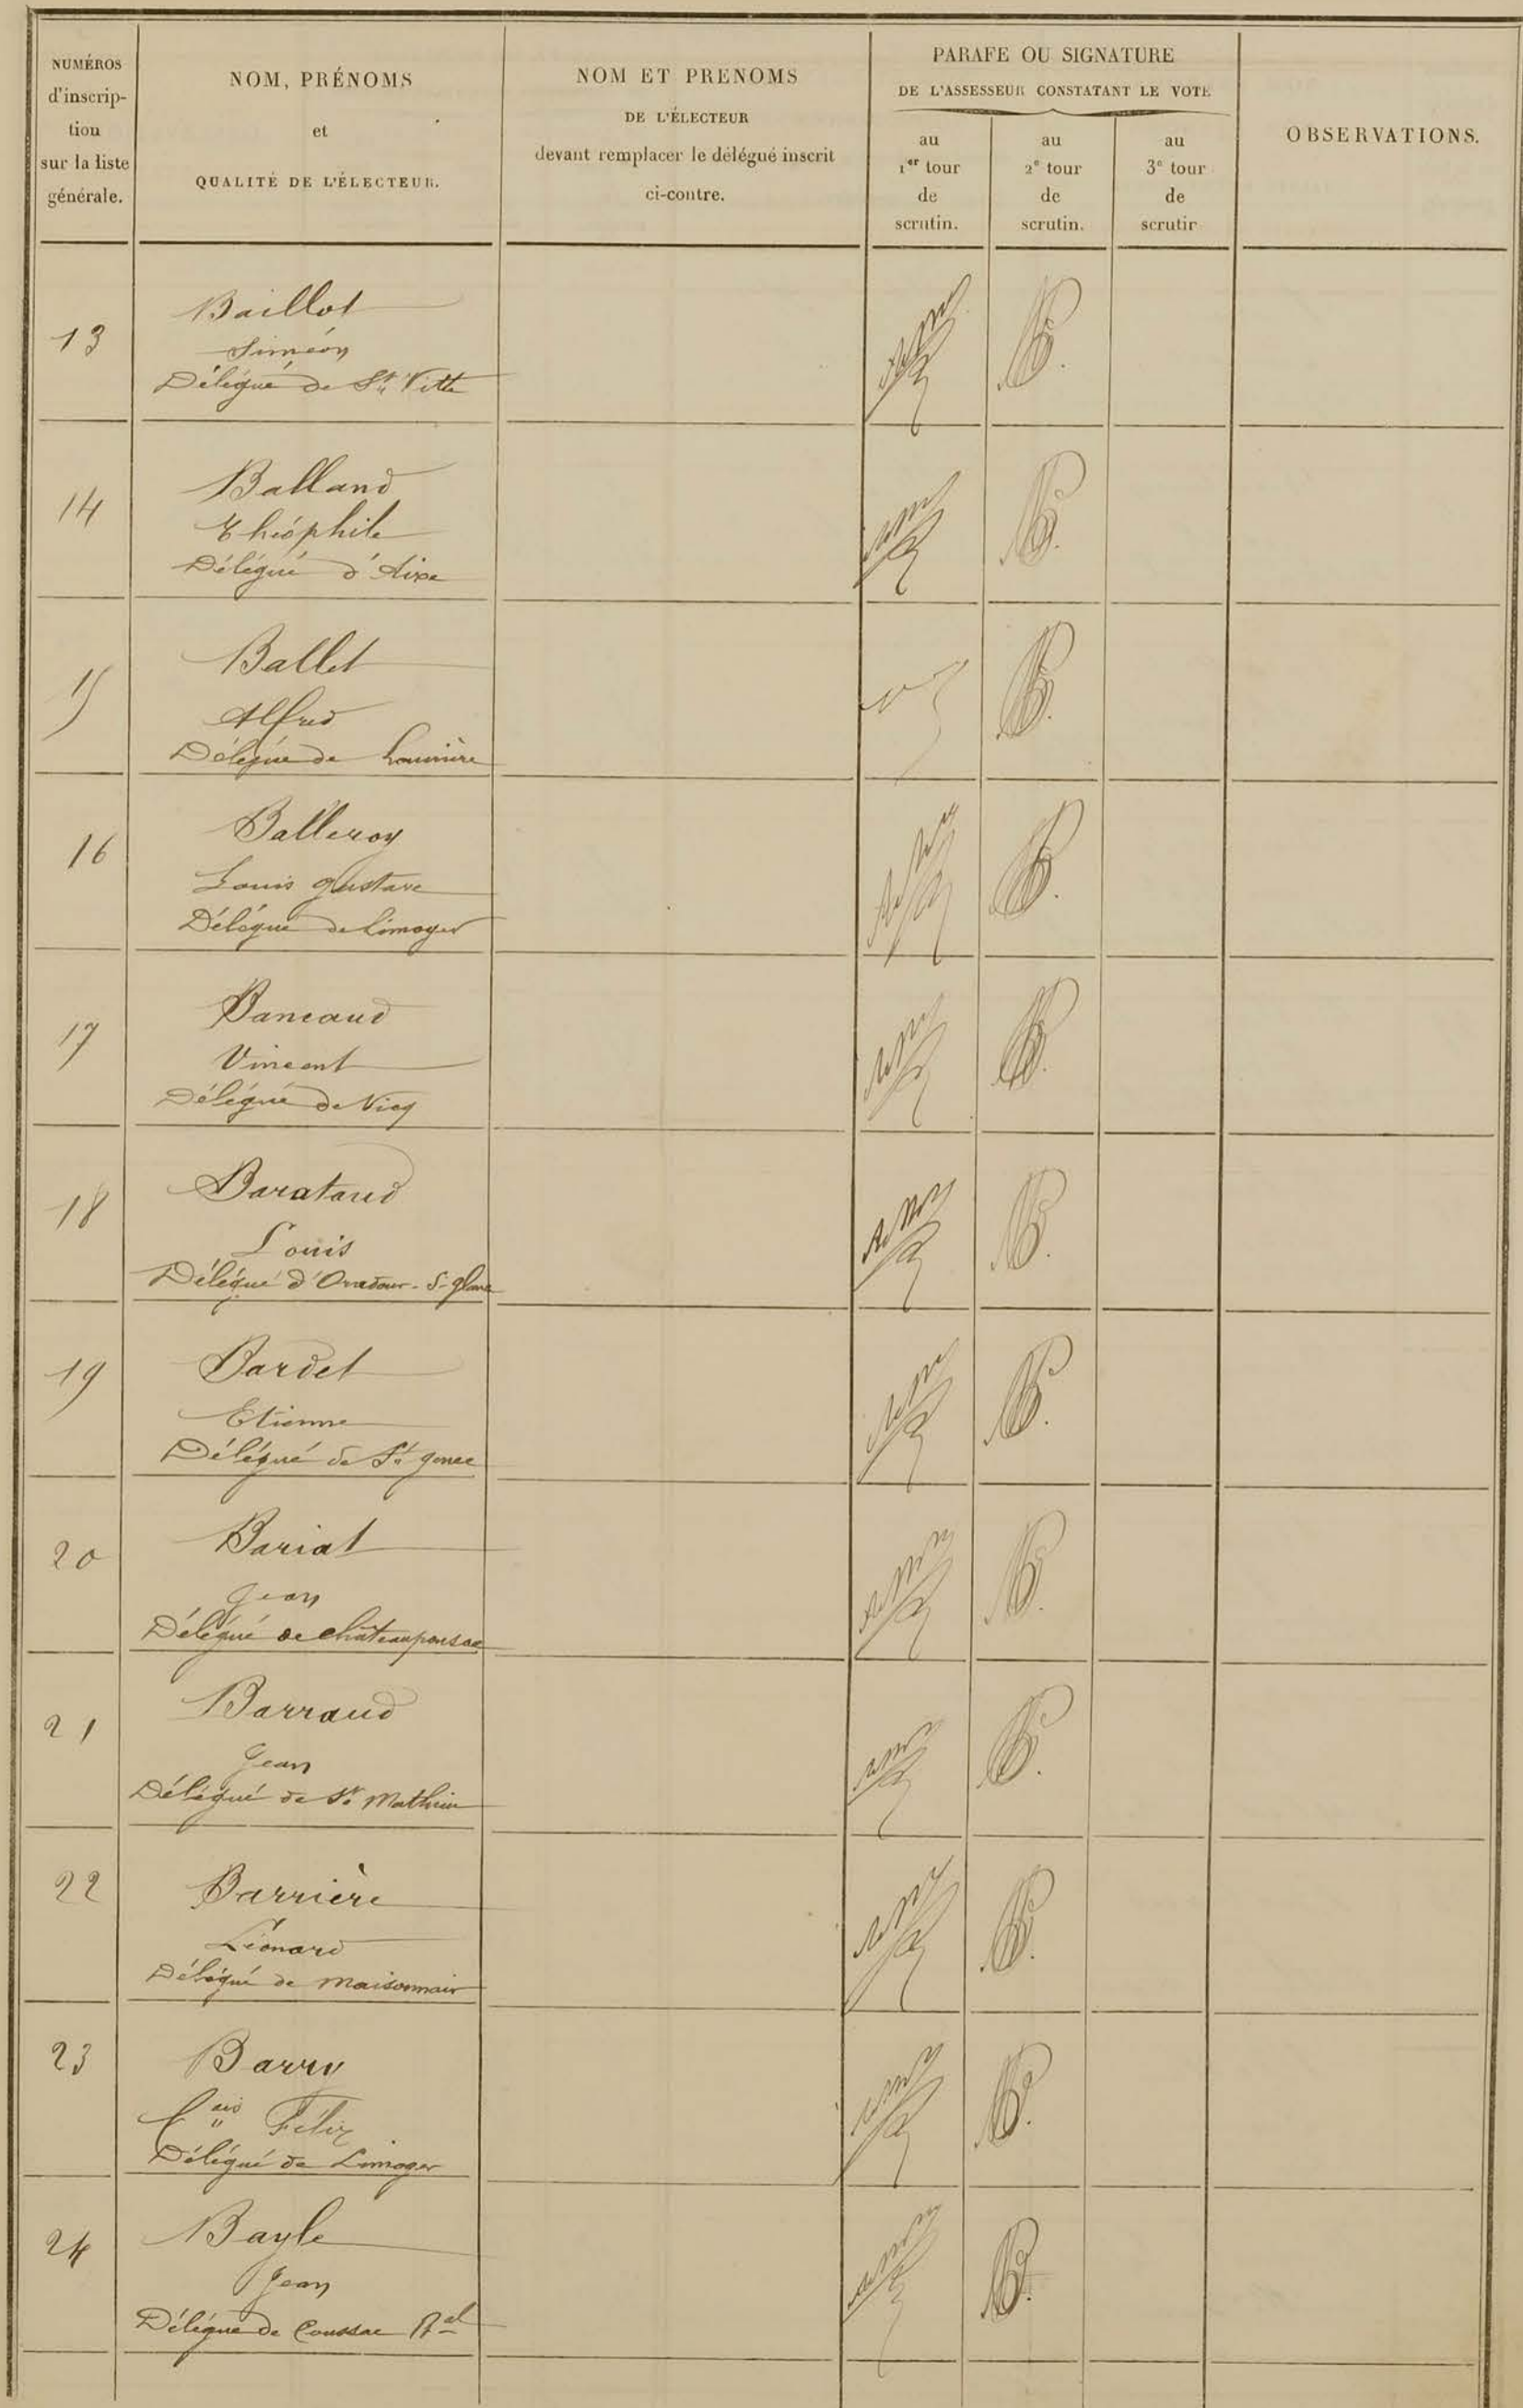 NUMÉROS
d'inscrip-
tion
sur la liste
générale.
NOM, PRÉNOMS
et
QUALITÉ DE L'ÉLECTEUR.
NOM ET PRENOMS
DE L'ÉLECTEUR
devant remplacer le délégué inscrit
ci-contre.
PARAFE OU SIGNATURE
DE L'ASSESSEUR CONSTATANT LE VOTE
au
1er tour
de
scrutin.
au
2e tour
de
scrutin.
au
3e tour
de
scrutin
OBSERVATIONS.
13
Baillot
Siméon
Délégué de St Vitte
14
Balland
Théophile
Délégué d'Aixe
15
Ballet
Alfred
Délégué de Laurière
16
Balleroy
Louis Gustave
Délégué de Limoges
17
Bancaud
Vincent
Délégué de Vicq
18
Barataud
Louis
Délégué d'Oradour-S-glane
19
Bardet
Etienne
Délégué de St gence
20
Bariat
Jean
Délégué de châteauponsac
21
Barraud
Jean
Délégué de St Mathieu
22
Barrière
Léonard
Délégué de Maisonnais
23
Barry
Félix
Délégué de Limoges
24
Bayle
Jean
Délégué de Coussac Bal